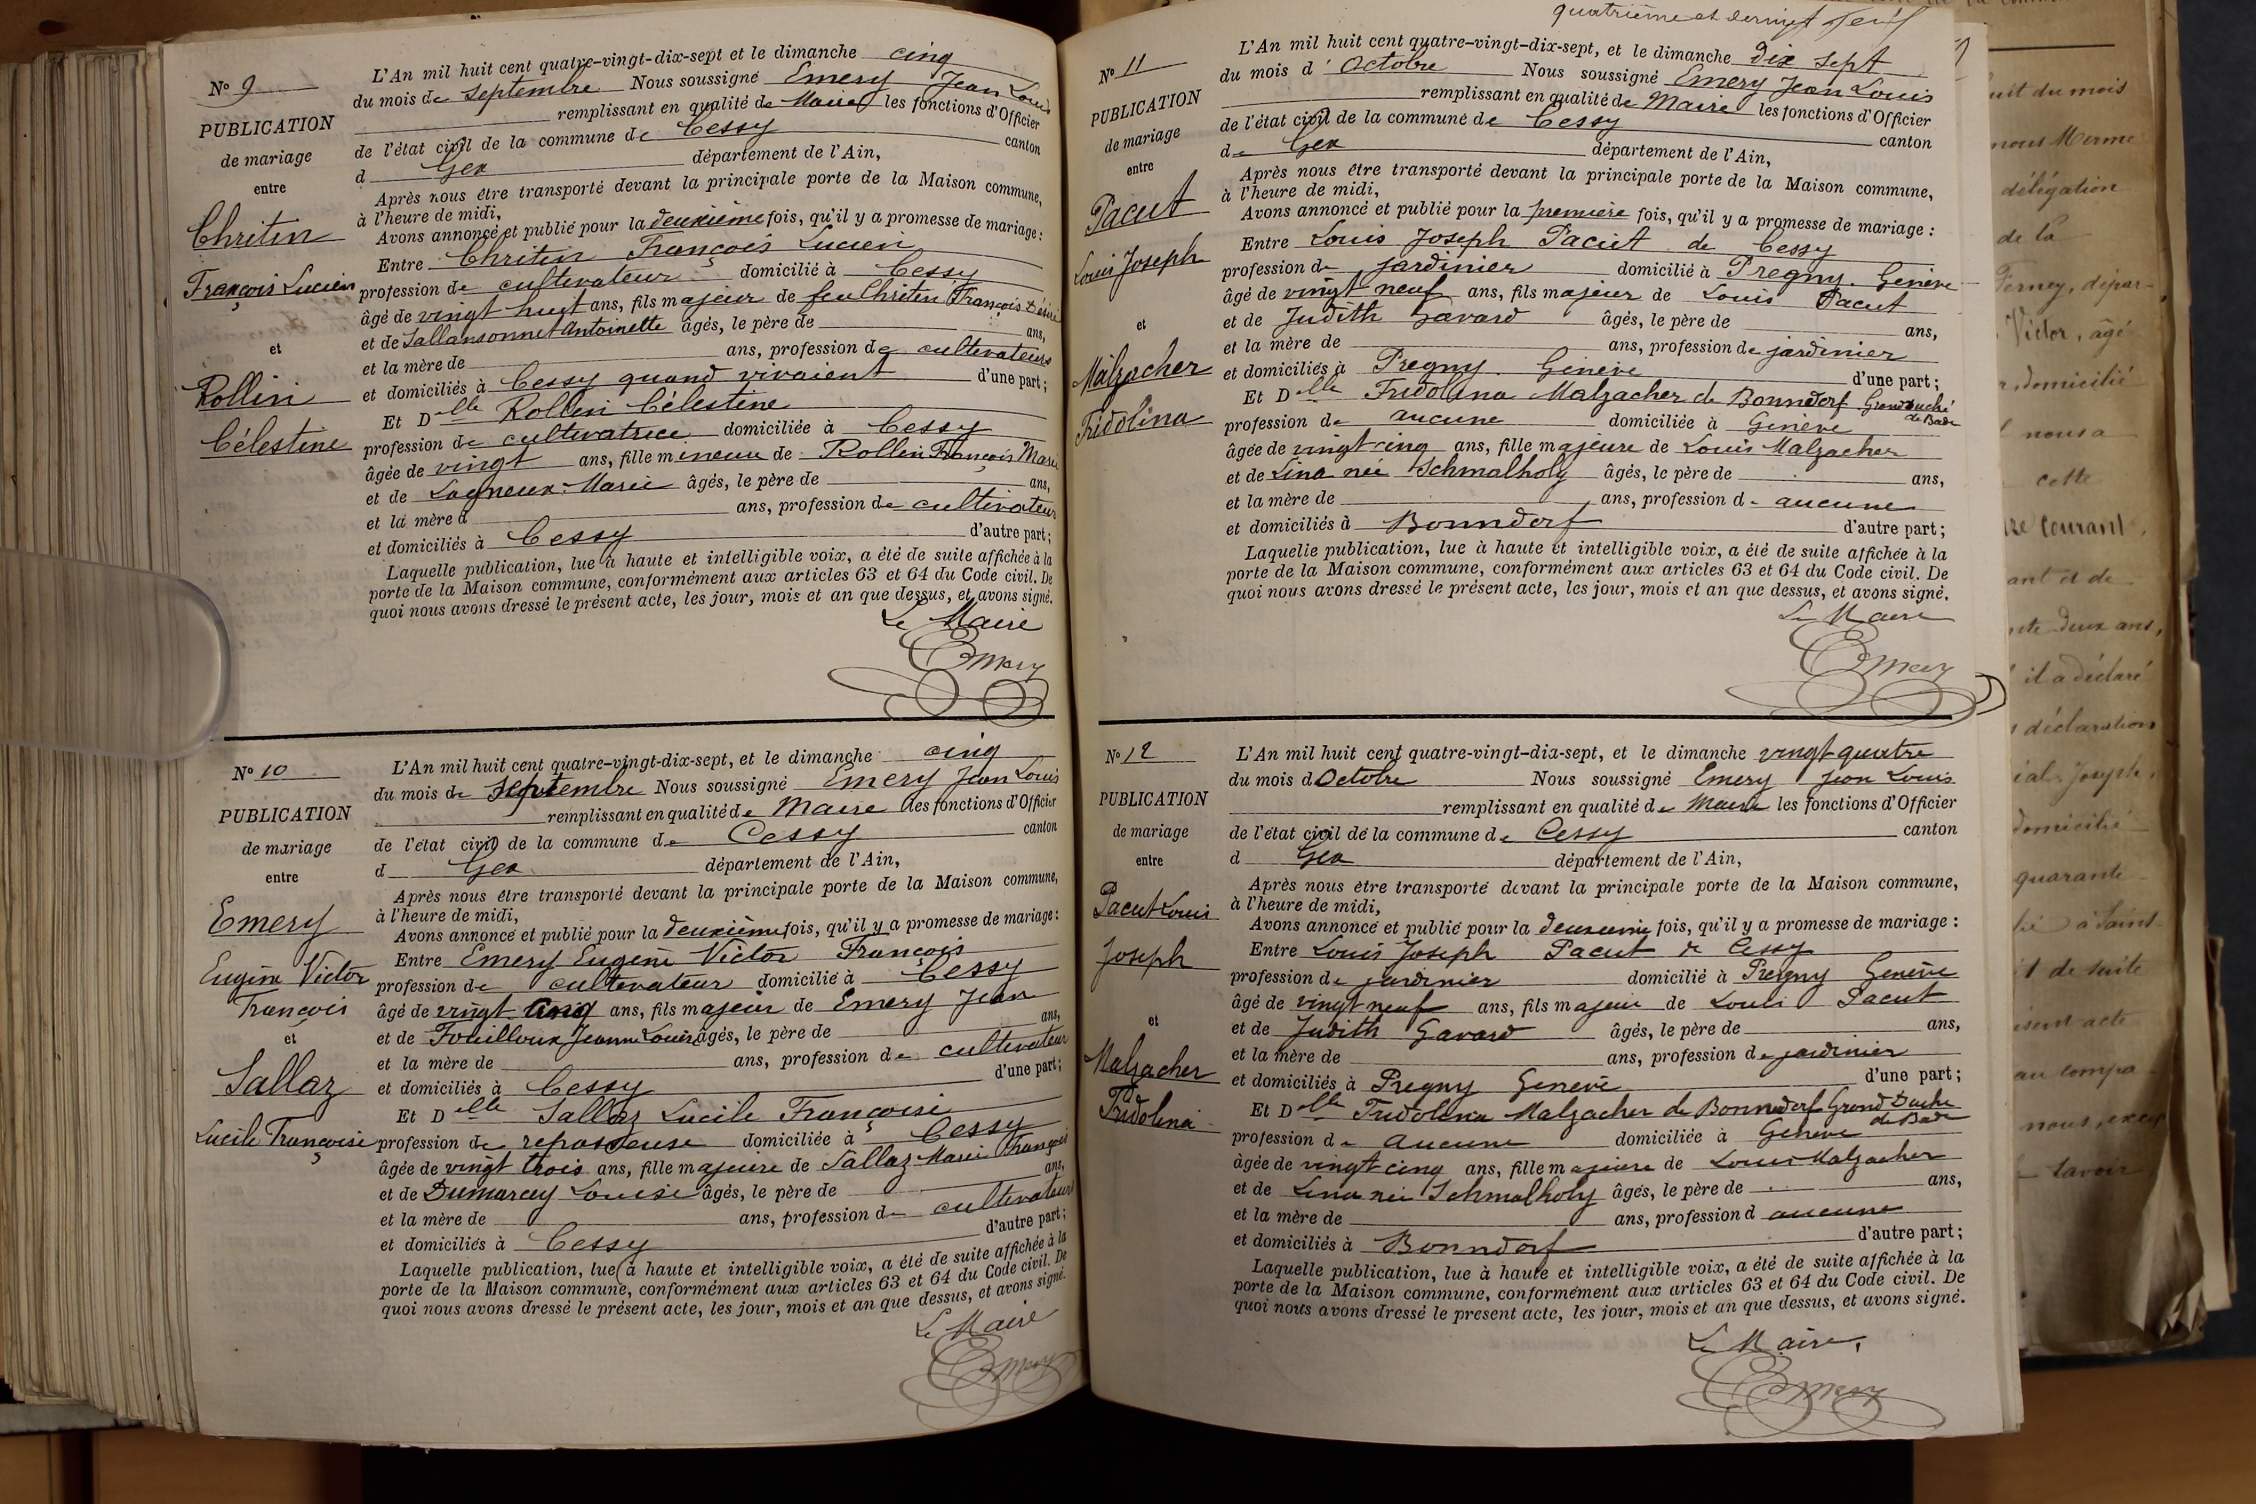 N° 9
PUBLICATION
de mariage
entre
Chritin
François Lucien
et
Rollin
Célestine
L'An mil huit cent quatre-vingt-dix-sept et le dimanche cinq
du mois de septembre Nous soussigné Emery Jean Louis
remplissant en qualité de Maire les fonctions d'Officier
de l'état civil de la commune de Cessy canton
d Gex département de l'Ain,
Après nous être transporté devant la principale porte de la Maison commune,
à l'heure de midi,
Avons annoncé et publié pour la deuxième fois, qu'il y a promesse de mariage :
Entre Chritin François Lucien
profession de cultivateur domicilié à Cessy
âgé de vingt huit ans, fils majeur de feu Chritin François Désiré
et de Sallansonnet Antoinette âgés, le père de ans,
et la mère de ans, profession de cultivateurs
et domiciliés à Cessy quand vivaient d'une part ;
Et Dlle Rollin Célestine
profession de cultivatrice domiciliée à Cessy
âgée de vingt ans, fille mineure de Rollin François Marie
et de Lagneux Marie âgés, le père de ans,
et la mère d ans, profession de cultivateur
et domiciliés à Cessy d'autre part ;
Laquelle publication, lue à haute et intelligible voix, a été de suite affichée à la
porte de la Maison commune, conformément aux articles 63 et 64 du Code civil. De
quoi nous avons dressé le présent acte, les jour, mois et an que dessus, et avons signé.
Le Maire
Emery
N° 10
PUBLICATION
de mariage
entre
Emery
Eugène Victor
François
et
Sallaz
Lucile Françoise
L'An mil huit cent quatre-vingt-dix-sept, et le dimanche cinq
du mois de septembre Nous soussigné Emery Jean Louis
remplissant en qualité de Maire les fonctions d'Officier
de l'état civil de la commune de Cessy canton
d Gex département de l'Ain,
Après nous être transporté devant la principale porte de la Maison commune,
à l'heure de midi,
Avons annoncé et publié pour la deuxième fois, qu'il y a promesse de mariage :
Entre Emery Eugène Victor François
profession de cultivateur domicilié à Cessy
âgé de vingt cinq ans, fils majeur de Emery Jean
et de Fouilloux Jeanne Louise âgés, le père de ans,
et la mère de ans, profession de cultivateur
et domiciliés à Cessy d'une part ;
Et Dlle Sallaz Lucile Françoise
profession de repasseuse domiciliée à Cessy
âgée de vingt trois ans, fille majeure de Sallaz Marie François
et de Dumarcey Louise âgés, le père de ans,
et la mère de ans, profession de cultivateurs
et domiciliés à Cessy d'autre part ;
Laquelle publication, lue à haute et intelligible voix, a été de suite affichée à la
porte de la Maison commune, conformément aux articles 63 et 64 du Code civil. De
quoi nous avons dressé le présent acte, les jour, mois et an que dessus, et avons signé.
Le Maire
Emery
quatrième et dernier feuil
N° 11
PUBLICATION
de mariage
entre
Pacut
Louis Joseph
et
Malzacher
Fridolina
L'An mil huit cent quatre-vingt-dix-sept, et le dimanche dix sept
du mois d'Octobre Nous soussigné Emery Jean Louis
remplissant en qualité de Maire les fonctions d'Officier
de l'état civil de la commune de Cessy canton
de Gex département de l'Ain,
Après nous être transporté devant la principale porte de la Maison commune,
à l'heure de midi,
Avons annoncé et publié pour la première fois, qu'il y a promesse de mariage :
Entre Louis Joseph Pacut de Cessy
profession de jardinier domicilié à Pregny. Genève
âgé de vingt neuf ans, fils majeur de Louis Pacut
et de Judith Gavard âgés, le père de ans,
et la mère de ans, profession de jardinier
et domiciliés à Pregny. Genève d'une part ;
Et Dlle Fridolina Malzacher de Bonndorf Grand Duché
de Bade
profession de aucune domiciliée à Genève
âgée de vingt cinq ans, fille majeure de Louis Malzacher
et de Lina née Schmalholy âgés, le père de ans,
et la mère de ans, profession de aucune
et domiciliés à Bonndorf d'autre part ;
Laquelle publication, lue à haute et intelligible voix, a été de suite affichée à la
porte de la Maison commune, conformément aux articles 63 et 64 du Code civil. De
quoi nous avons dressé le présent acte, les jour, mois et an que dessus, et avons signé.
Le Maire
Emery
N° 12
PUBLICATION
de mariage
entre
Pacut Louis
Joseph
et
Malzacher
Fridolina
L'An mil huit cent quatre-vingt-dix-sept, et le dimanche vingt quatre
du mois d Octobre Nous soussigné Emery Jean Louis
remplissant en qualité de Maire les fonctions d'Officier
de l'état civil de la commune de Cessy canton
d Gex département de l'Ain,
Après nous être transporté devant la principale porte de la Maison commune,
à l'heure de midi,
Avons annoncé et publié pour la deuxième fois, qu'il y a promesse de mariage :
Entre Louis Joseph Pacut de Cessy
profession de jardinier domicilié à Pregny Genève
âgé de vingt neuf ans, fils majeur de Louis Pacut
et de Judith Gavard âgés, le père de ans,
et la mère de ans, profession de jardinier
et domiciliés à Pregny Genève d'une part ;
Et Dlle Fridolina Malzacher de Bonndorf Grand Duché
de Bade
profession de aucune domiciliée à Genève
âgée de vingt cinq ans, fille majeure de Louis Malzacher
et de Lina née Schmalholy âgés, le père de ans,
et la mère de ans, profession d aucune
et domiciliés à Bonndorf d'autre part ;
Laquelle publication, lue à haute et intelligible voix, a été de suite affichée à la
porte de la Maison commune, conformément aux articles 63 et 64 du Code civil. De
quoi nous avons dressé le présent acte, les jour, mois et an que dessus, et avons signé.
Le Maire,
Emery
du mois
nous Merme
délégation
de la
Ferney, dépar-
Victor, âgé
domicilié
nous a
cette
courant,
ant et de
deux ans,
il a déclaré
déclaration
Joseph,
domicilié
quarante
à Saint
et de suite
acte
au compa
nous,
savoir